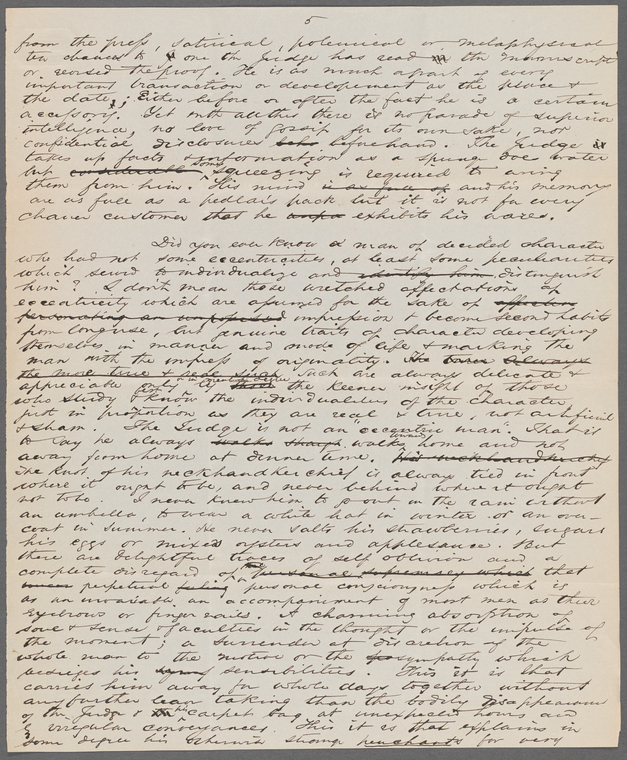 5
from the press, satirical, polemical or metaphysical
ten chances to one the Judge has read in the manuscript
or revised the proof. He is as much a part of every
important transaction or developement as the place &
the date; Either before or after the fact he is a certain
accessory. Yet with all this there is no parade of superior
intelligence, no love of gossip for its own sake, nor
confidential disclosures beforehand. The Judge
takes up facts & information as a spunge doe water
but considerable some squeezing is required to wring
them from him. His mind is as full of and his memory
are as full as a pedlar's pack but it is not for every
chance customer that he exhibits his wares.
Did you ever know a man of decided character
who had not some eccentricities, at least some peculiarities
which serve to individualize and identify him distinguish
him? I don't mean those wretched affectations of
eccentricity which are assumed for the sake of
impression & become second habits
from long use, but genuine traits of character developing
themselves in manner and mode of life & marking the
man with the impress of originality. always
the more true & real Such are always delicate &
appreciable only or in greatest degree by the keener insight of those
who study & best know the individualism of the character,
just in proportion as they are real & true, not artificial
& sham. The Judge is not an "eccentric man". That is
to say he always walks toward home and not
away from home at dinner time. His neckhandkerchief
The knot of his neckhandkerchief is always tied in front
where it ought to be, and never behind where it ought
not to be. I never knew him to go out in the rain without
an umbrella, to wear a white hat in winter or an over-
coat in summer. He never salts his strawberries, sugars
his eggs or mixes oysters and applesauce. But
there are delightful traces of self oblivion and a
complete disregard of the personal supremacy which that
perpetual feeling personal consciousness which is
as an invariable an accompaniment of most men as their
eyebrows or finger nails. A charming absorption of
soul & sense & faculties in the thought or the impulse of
the moment; a surrender at discretion of the
whole man to the motive or the sympathy which
besieges his sensibilities. This it is that
carries him away for whole days together without
any further leave taking than the bodily disappearance
of the Judge & his carpet bag at unexpected hours and
by irregular conveyances. This it is that explains in
some degree his otherwise strange penchants for very